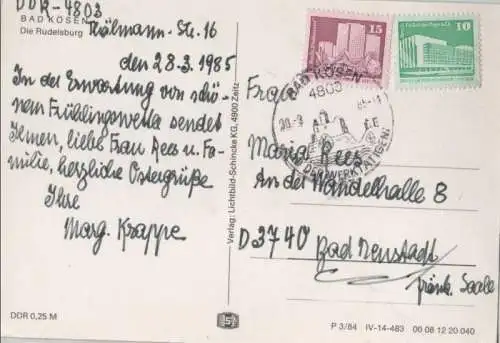 DDR-4803
BAD KÖSEN
Die Rudelsburg
Str. 16
den 28.3.1985
In der Erwartung von schö-
nem Frühlingswetter sendet
Ihnen, liebe Frau Rees u. Fa-
milie, herzliche Ostergrüße
Ihre
Marg. Krappe
DDR 0,25 M
Verlag: Lichtbild-Schincke KG, 4900 Zeitz
15
10
BAD KÖSEN
4803
Frau
Maria Rees
An der Wandelhalle 8
D 3740 Bad Neustadt
fränk. Saale
P 3/84 IV-14-483 00 08 12 20 040